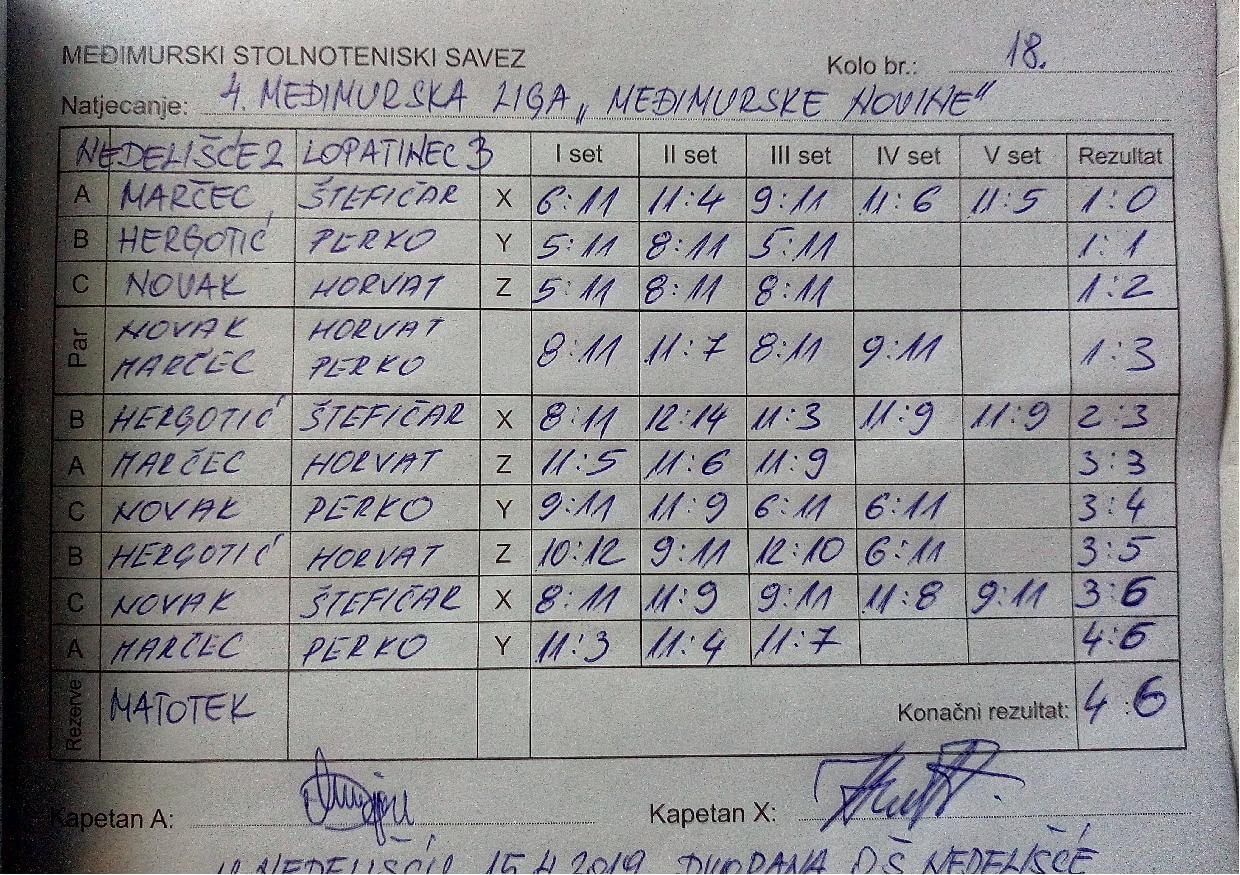 MEĐIMURSKI STOLNOTENISKI SAVEZ
Kolo br.: 18.
Natjecanje: 4. MEĐIMURSKA LIGA „MEĐIMURSKE NOVINE"
NEDELIŠĆE 2 LOPATINEC 3 I set II set III set IV set V set Rezultat
A MARČEC ŠTEFIČAR X 6:11 11:4 9:11 11:6 11:5 1:0
B HERGOTIĆ PERKO Y 5:11 8:11 5:11 1:1
C NOVAK HORVAT Z 5:11 8:11 8:11 1:2
Par NOVAK HORVAT 8:11 11:7 8:11 9:11 1:3
MARČEC PERKO
B HERGOTIĆ ŠTEFIČAR X 8:11 12:14 11:3 11:9 11:9 2:3
A MARČEC HORVAT Z 11:5 11:6 11:9 3:3
C NOVAK PERKO Y 9:11 11:9 6:11 6:11 3:4
B HERGOTIĆ HORVAT Z 10:12 9:11 12:10 6:11 3:5
C NOVAK ŠTEFIČAR X 8:11 11:9 9:11 11:8 9:11 3:6
A MARČEC PERKO Y 11:3 11:4 11:7 4:6
Rezerve MATOTEK Konačni rezultat: 4:6
Kapetan A: Kapetan X:
U NEDELIŠĆU 15.4.2019. DVORANA OŠ NEDELIŠĆE